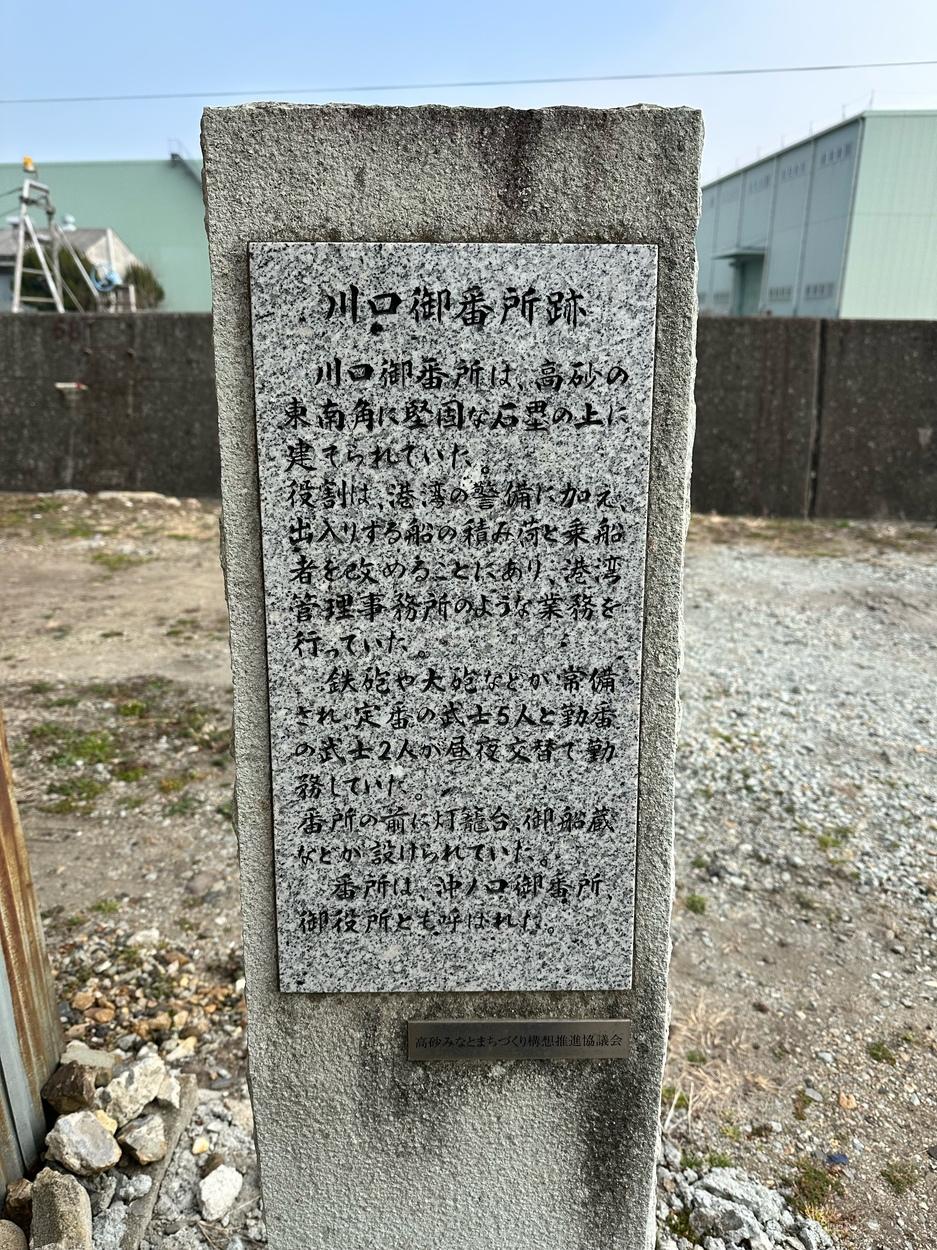 川口御番所跡
川口御番所は、高砂の
東南角に堅固な石塁の上に
建てられていた。
役割は、港湾の警備に加え、
出入りする船の積み荷と乗船
者を改めることにあり、港湾
管理事務所のような業務を
行っていた。
鉄砲や大砲などが常備
され、定番の武士5人と勤番
の武士2人が昼夜交替で勤
務していた。
番所の前に灯籠台、御船蔵
などが設けられていた。
番所は、沖ノ口御番所、
御役所とも呼ばれた。
高砂みなとまちづくり構想推進協議会